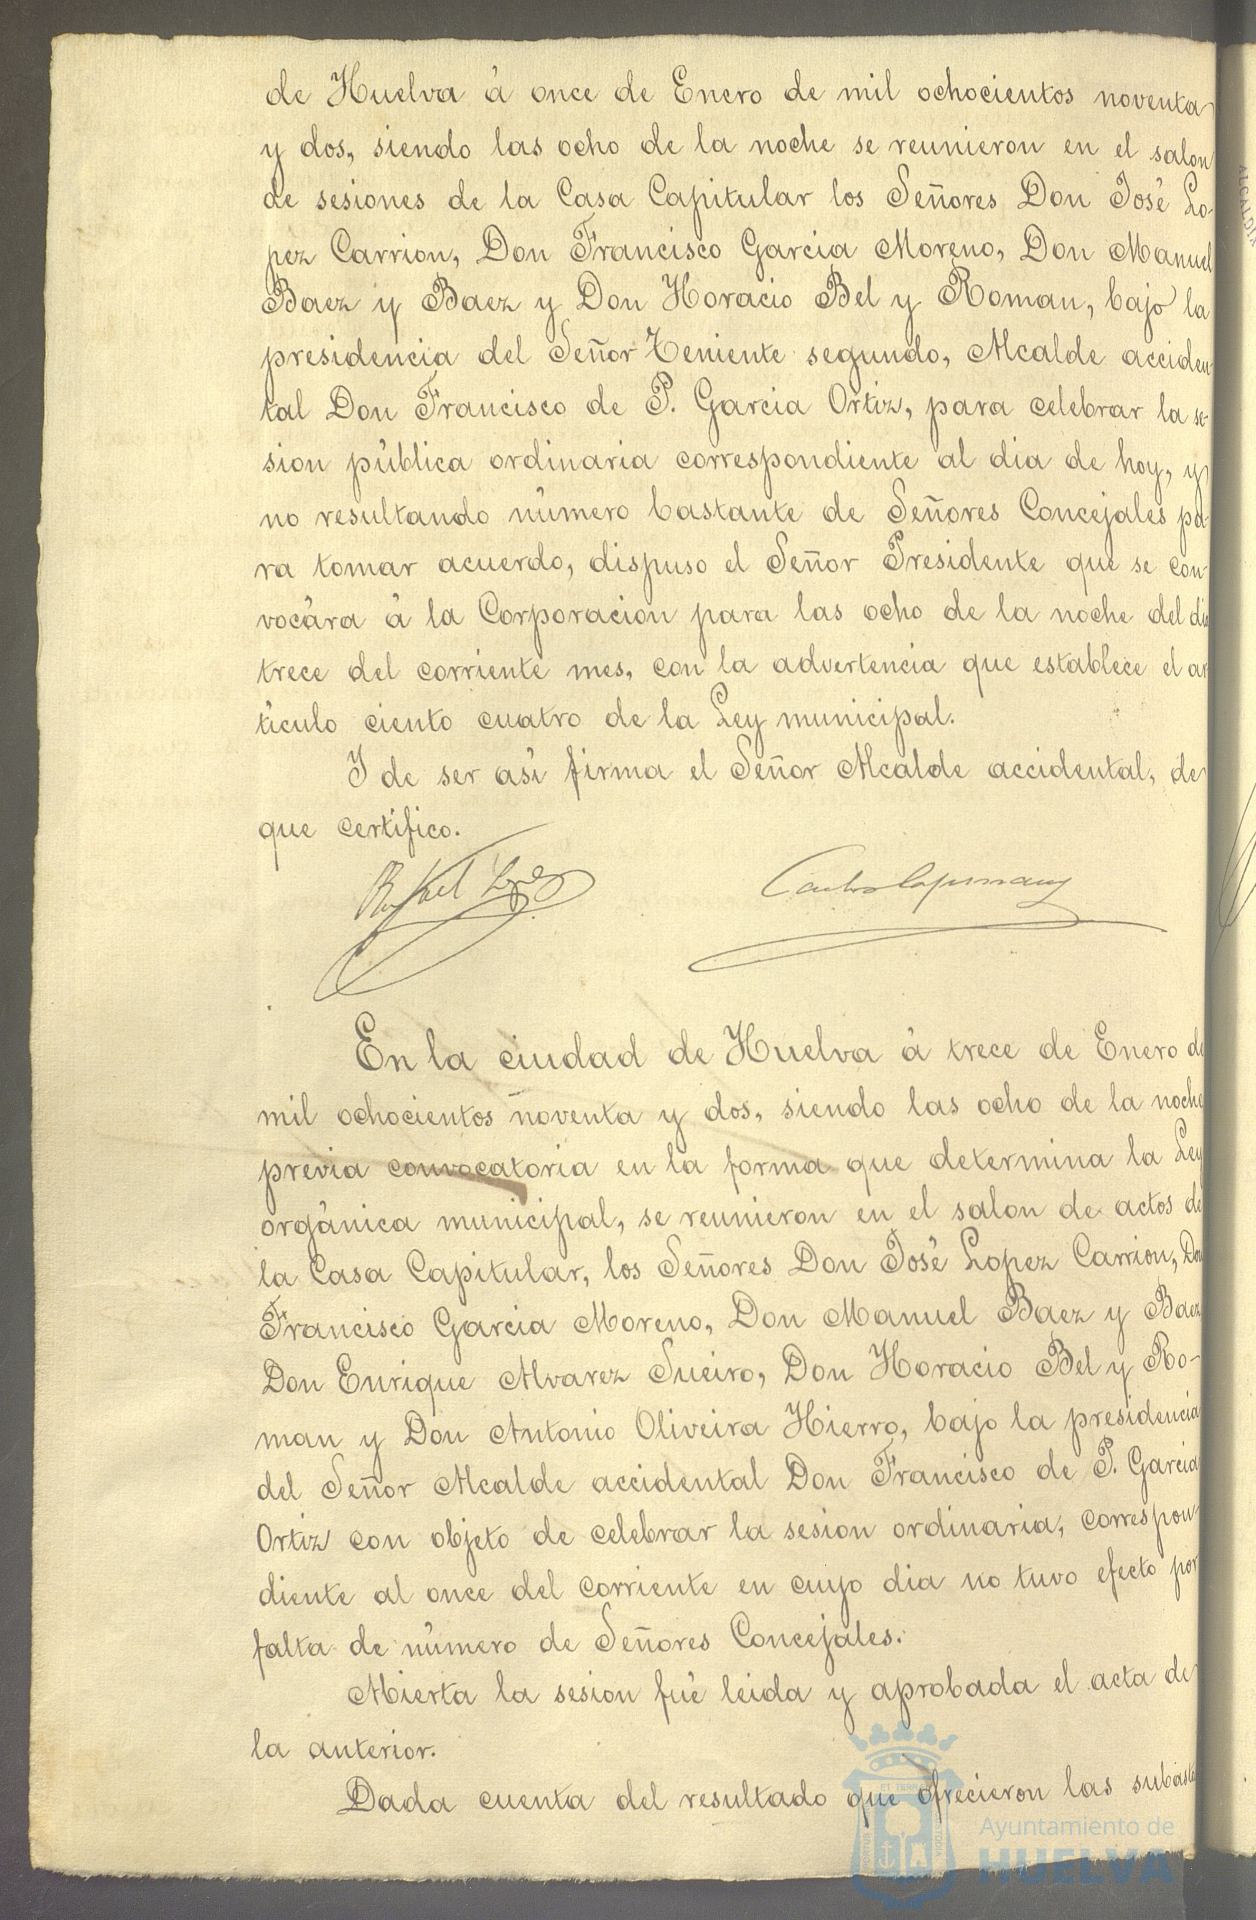 de Huelva á once de Enero de mil ochocientos noventa
y dos, siendo las ocho de la noche se reunieron en el salon
de sesiones de la Casa Capitular los Señores Don José Lo-
pez Carrion, Don Francisco Garcia Moreno, Don Manuel
Baez y Baez y Don Horacio Bel y Roman, bajo la
presidencia del Señor Teniente segundo, Alcalde acciden
tal Don Francisco de P. Garcia Ortiz, para celebrar la se-
sion pública ordinaria correspondiente al dia de hoy, y
no resultando número bastante de Señores Concejales pa-
ra tomar acuerdo, dispuso el Señor Presidente que se con-
vocára á la Corporacion para las ocho de la noche del dia
trece del corriente mes, con la advertencia que establece el ar
tículo ciento cuatro de la Ley municipal.
Y de ser así firma el Señor Alcalde accidental, de
que certifico.
En la ciudad de Huelva á trece de Enero de
mil ochocientos noventa y dos, siendo las ocho de la noche
previa convocatoria en la forma que determina la Ley
orgánica municipal, se reunieron en el salon de actos de
la Casa Capitular, los Señores Don José Lopez Carrion, Don
Francisco Garcia Moreno, Don Manuel Baez y Baez
Don Enrique Alvarez Sueiro, Don Horacio Bel y Ro-
man y Don Antonio Oliveira Hierro, bajo la presidencia
del Señor Alcalde accidental Don Francisco de P. Garcia
Ortiz con objeto de celebrar la sesion ordinaria, correspon-
diente al once del corriente en cuyo dia no tuvo efecto por
falta de número de Señores Concejales.
Abierta la sesion fué leida y aprobada el acta de
la anterior.
Dada cuenta del resultado que ofrecieron las subastas
Ayuntamiento de
HUELVA